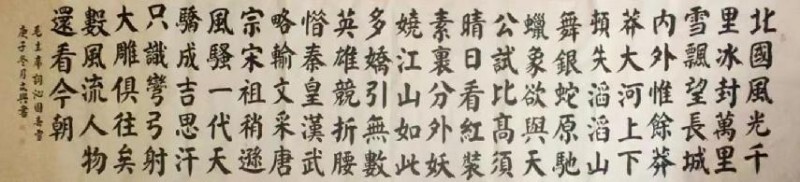 北國風光千
里冰封萬里
雪飄望長城
内外惟餘莽
莽大河上下
頓失滔滔山
舞銀蛇原馳
蠟象欲與天
公試比高須
晴日看紅裝
素裹分外妖
嬈江山如此
多嬌引無數
英雄競折腰
惜秦皇漢武
略輸文采唐
宗宋祖稍遜
風騷一代天
驕成吉思汗
只識彎弓射
大雕俱往矣
數風流人物
還看今朝
毛主席詞沁園春雪
庚子冬月文興書